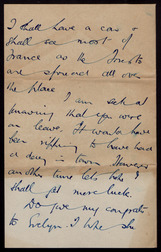 I shall have a car &
shall see most of
France as the Troops
are spread all over
the place
I am sick at
knowing that you were
on leave. It would have
been ripping to have had
a day in town. However
another time let's hope I
shall get more luck.
Do give my congrats
to Evelyn. I hope she